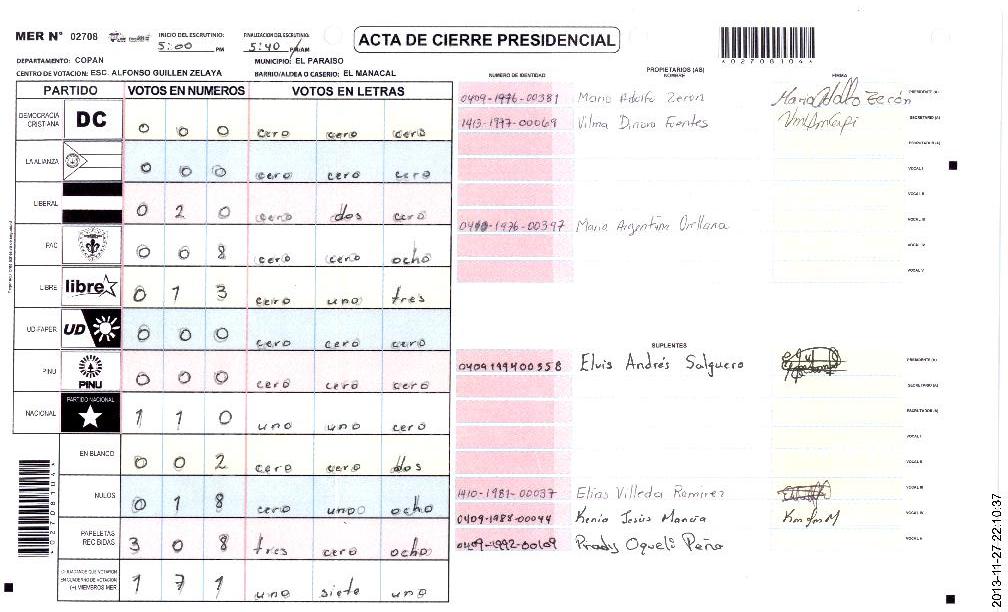 MER N° 02708 INICIO DEL ESCRUTINIO: 5:00 PM FINALIZACION DEL ESCRUTINIO: 5:40 PM/AM ACTA DE CIERRE PRESIDENCIAL
DEPARTAMENTO: COPAN MUNICIPIO: EL PARAISO
CENTRO DE VOTACION: ESC. ALFONSO GUILLEN ZELAYA BARRIO/ALDEA O CASERIO: EL MANACAL
*02708104*
PARTIDO VOTOS EN NUMEROS VOTOS EN LETRAS
DEMOCRACIA CRISTIANA DC 0 0 0 cero cero cero
LA ALIANZA 0 0 0 cero cero cero
LIBERAL 0 2 0 cero dos cero
PAC 0 0 8 cero cero ocho
LIBRE libre 0 1 3 cero uno tres
UD-FAPER UD 0 0 0 cero cero cero
PINU PINU 0 0 0 cero cero cero
NACIONAL PARTIDO NACIONAL 1 1 0 uno uno cero
EN BLANCO 0 0 2 cero cero dos
NULOS 0 1 8 cero uno ocho
PAPELETAS RECIBIDAS 3 0 8 tres cero ocho
CIUDADANOS QUE VOTARON EN CUADERNO DE VOTACION (+) MIEMBROS MER 1 7 1 uno siete uno
*02708104*
NUMERO DE IDENTIDAD PROPIETARIOS (AS) NOMBRE FIRMA
0409-1976-00381 Mario Adolfo Zeron PRESIDENTE (A)
1413-1977-00069 Vilma Dinora Fuentes SECRETARIO (A)
ESCRUTADOR (A)
VOCAL I
VOCAL II
Maria Argentina Orellana VOCAL III
VOCAL IV
VOCAL V
SUPLENTES
0409199400558 Elvis Andrés Salguero PRESIDENTE (A)
SECRETARIO (A)
ESCRUTADOR (A)
VOCAL I
VOCAL II
1410-1981-00037 Elias Villeda Ramirez VOCAL III
0409-1988-00044 Kenia Jesús Mancia VOCAL IV
0409-1992-00109 Prady Oqueli Peña VOCAL V
2013-11-27 22:10:37